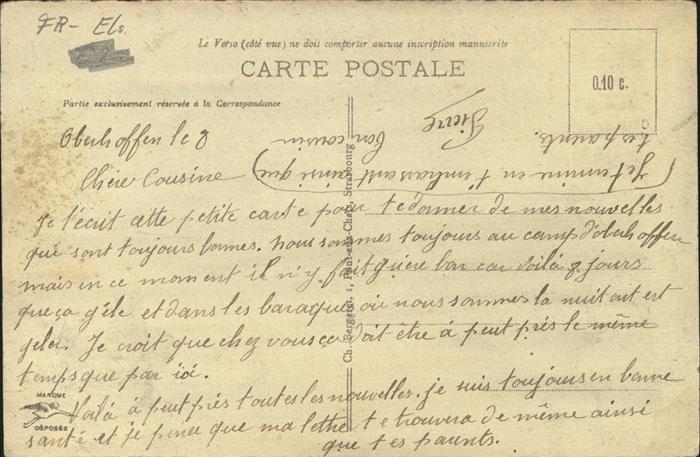 FR- Els.
Le Verso (côté vue) ne doit comporter aucune inscription manuscrite
CARTE POSTALE
0.10 c.
Partie exclusivement réservée à la Correspondance
Oberhoffen le 8
Chère Cousine
Je t'écrit cette petite carte pour te donner de mes nouvelles
qui sont toujours bonnes. nous sommes toujours au camp d'oberhoffen
mais en ce moment il n'y fait guère bon car voilà 8 jours
que ça gèle et dans les baraques où nous sommes la nuit ont est
geler. Je croit que chez vous ça doit être à peut près le même
temps que par ici.
Voilà à peut près toutes les nouvelles. je suis toujours en bonne
santé et je pense que ma lettre te trouvera de même ainsi
que tes parents.
Je termine en t'embrassant ainsi que
tes parents.
Ton cousin
Pierre
Ch. Bergeret, 1, Strasbourg
MARQUE
DÉPOSÉE